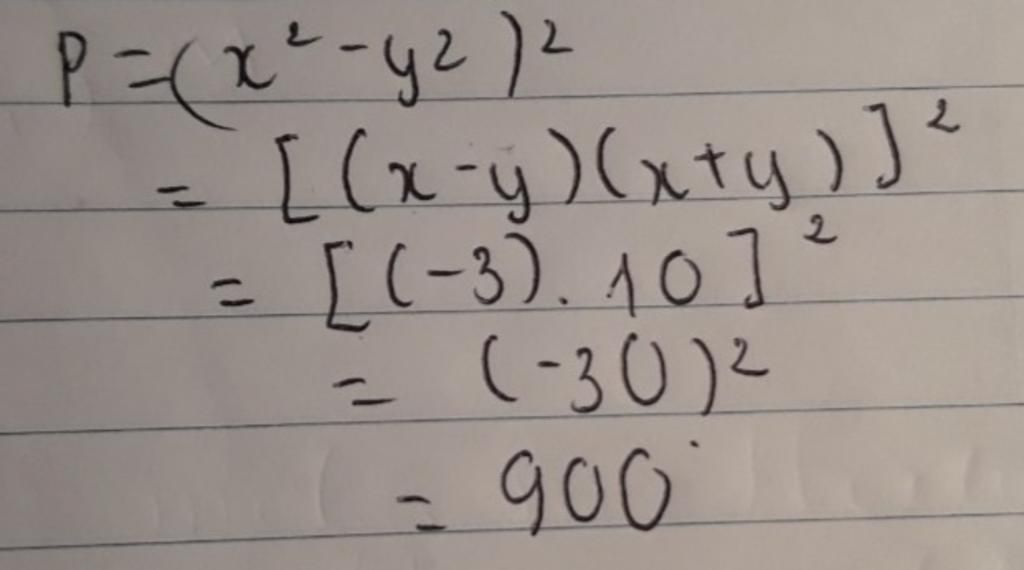 P = (x² - y2)²
= [(x - y)(x + y)]²
= [(-3). 10]²
= (-30)²
= 900